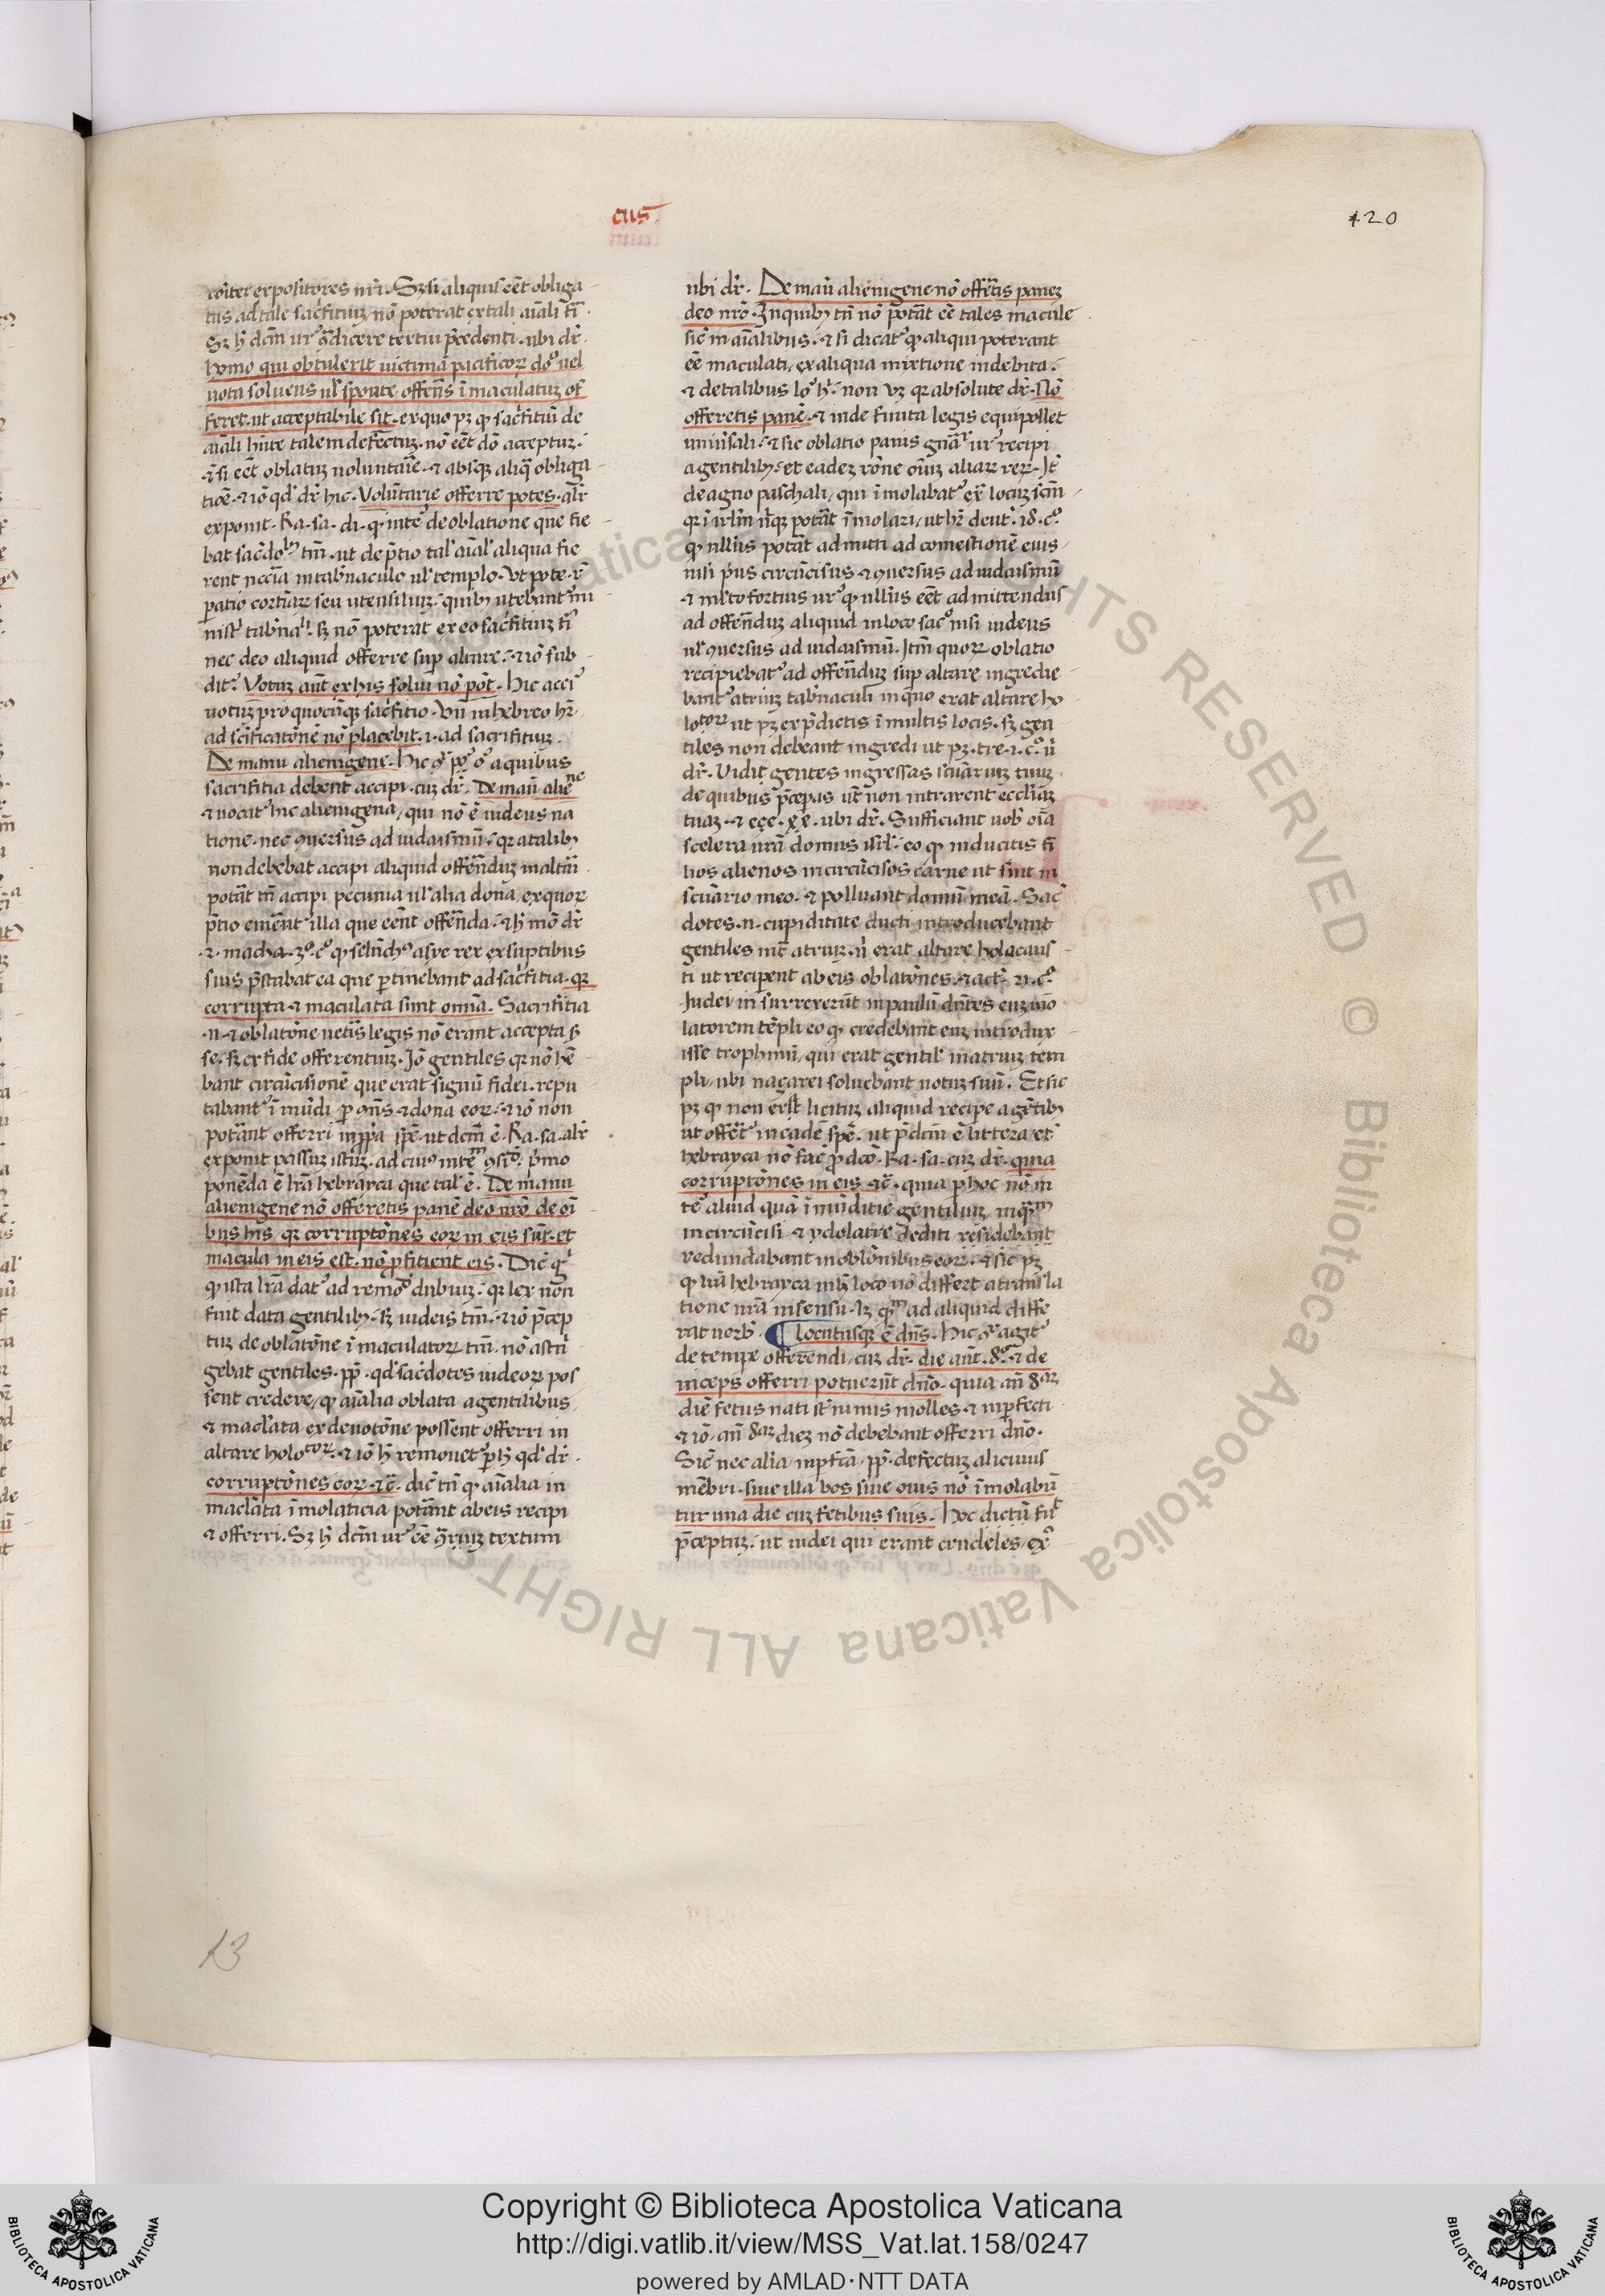 cus
120
coiter expositores nri. Sz si aliquis eet obliga
tus ad tale sacrifitiuz nō poterat ex tali aiali fi
Sz h̄ dcm ur gdicere textui pcedenti. ubi dr.
homo qui obtulerit uictimā pacificoꝝ dō uel
uota soluens ul sponte offerēs īmaculatuz of
feret. ut acceptabile sit. ex quo pz ꝙ sacrifitiū de
aiali hnte talem defectuz. nō eet dō acceptuz.
⁊ si eet oblatuz uoluntarie. ⁊ absqz aliqua obliga
tiōe. ⁊ iō qd dr hic. Volūtarie offerre potes. alr
exponit. Ra. sa. di. ꝙ inte de oblatione que fie
bat sacdobꝫ tm. ut de ptio tal aial aliqua fie
rent nccia in tabnaculo ul templo. Vt pote. re
patio cortinaꝝ seu utensiliuꝝ. quibꝫ utebant mi
nistri tabnali. sz nō poterat ex eo sacrifitiuz fi
nec deo aliquid offerre sup altare. ⁊ iō sub
dit. Votuz aut ex his solui nō pōt. Hic acci
uotuz pro quocūqz sacrifitio. Vn in hebreo hr.
ad scificatōne nō placebit. i. ad sacrifitiuz.
De manu alienigene. Hic 9r po o a quibus
sacrifitia debent accipi. cuz dr. De manu aliene
⁊ uocat hic alienigena, qui nō ē iudeus na
tione. nec 9uersus ad iudaismū. qr a talibꝫ
non debebat accipi aliquid offerēduz in altari
potat tn accipi pecunia ul alia dona, ex quoꝝ
ptio emēent illa que eent offerēda. ⁊ h mō dr
.2. macha. 3o. co ꝙ selēchus asye rex ex suptibus
suis pstabat ea que ptinebant ad sacrifitia. qr
corrupta ⁊ maculata sunt omia. Sacrifitia
.n. ⁊ oblatōne uetis legis nō erant accepta p
se. sz ex fide offerentiuz. Jō gentiles qr nō he
bant circūcisionē que erat signū fidei. repu
tabant īmūdi, p 9ns ⁊ dona eoꝝ. ⁊ iō non
potant offerri in ppa spe. ut dcm ē. Ra. sa. alr
exponit passuz istuz. ad cuius inte 9sido. pmo
ponēda ē lra hebrayca que tal ē. De manu
alienigene nō offeretis panē deo nrō de oī
bus his, qr corruptōnes eoꝝ in eis sūt. et
macula in eis est. nō pfitient eis. Dic g
ꝙ ista lra dat ad remoo dubiuz. qr lex non
fuit data gentilibꝫ. sz iudeis tm. ⁊ iō pcep
tuz de oblatōne īmaculatoꝝ tm. nō astri
gebat gentiles. pp. qd sacdotes iudeoꝝ pos
sent credere, ꝙ aialia oblata a gentilibus
⁊ maclata, ex deuotōne possent offerri in
altare holocoꝝ. ⁊ iō h remouet p h qd dr.
corruptōnes eoꝝ ⁊c. dic tn ꝙ aialia in
maclata īmolaticia potant ab eis recipi
⁊ offerri. Sz h dcm ur ee griuz textum
ubi dr. De manu alienigene nō offertis panez
deo nrō. In quibꝫ tn nō potat ee tales macule
sic in aialibus. ⁊ si dicat ꝙ aliqui poterant
ee maculati, ex aliqua mixtione indebita.
⁊ de talibus lo h. non uz qr absolute dr. Nō
offeretis panē. ⁊ inde finita legis equipollet
uniusali. ⁊ sic oblatio panis gnal ur recipi
a gentilibꝫ. et eadez rōne oiuz aliaꝝ reꝝ. Jt
de agno paschali, qui īmolabat ex locuz scm
qr ī irlm nqz potat īmolari, ut hr deut. 18. co.
ꝙ nllus potat admitti ad comestionē eius
nisi pus circūcisus ⁊ 9uersus ad iudaismū
⁊ mlto fortius ur ꝙ nllus eet admittendus
ad offerēduz aliquid in loco saco nisi iudeus
ul 9uersus ad iudaismū. Jtm quoꝝ oblatio
recipiebat ad offerēduz sup altare ingredie
bant atriuz tabnaculi in quo erat altare ho
locoꝝ ut pz ex pdictis ī multis locis. sz gen
tiles non debeant ingredi ut pz. tre. i. co. ū
dr. Vidit gentes ingressas scuariuz tuuz
de quibus pceperas ut non intrarent eccliaz
tuaz. ⁊ ece. xx. ubi dr. Sufficiant uob oia
scelera ura domus isrl. eo ꝙ inducitis fi
lios alienos incircūcisos carne ut sint in
scuario meo. ⁊ polluant domū meā. Sac
dotes. n. cupiditate ducti introducebant
gentiles int atriuz. ū erat altare holocaus
ti ut reciperent ab eis oblatōnes. ⁊ act. 21. co.
Judei insurrexerūt in paulū dntes euz uio
latorem tēpli eo ꝙ credebant euz introdux
isse trophimū, qui erat gentil in atriuz tem
pli, ubi naçarei soluebant uotuz suū. Et sic
pz ꝙ non erat licituz aliquid recipe a gētibꝫ
ut offēret in eadē spe. ut pdcm ē littera et
hebrayca nō fac p dco. Ra. sa. cuz dr. quia
corruptōnes in eis ⁊c. quia p hoc nō in
te aliud quā īmūditie gentiliuz, inqm
incircūcisi ⁊ ydolatrie dediti, residebant
redundabant in oblōnibus eoꝝ. ⁊ sic pz
ꝙ lra hebrayca in h loco nō differt a transla
tione nrā in sensu. lz qm ad aliquid diffe
rat uerb. ¶ Locutusqz ē dns. Hic 9r agit
de tempe offerendi, cuz dr. die aut. 8o. ⁊ de
inceps offerri potuerūt dno. quia an 8aꝫ
diē fetus nati st nimis molles ⁊ inpfecti
⁊ iō. an 8aꝫ diez nō debebant offerri dno.
Sic nec alia inpfcta, pp. defectuz alicuius
mēbri. siue illa bos siue ouis nō īmolabū
tur una die cuz fetibus suis. Hoc dictū fuit
pceptuz. ut iudei qui erant crudeles, ex
13
ALL RIGHTS RESERVED © Biblioteca Apostolica Vaticana
Copyright © Biblioteca Apostolica Vaticana
http://digi.vatlib.it/view/MSS_Vat.lat.158/0247
powered by AMLAD·NTT DATA
BIBLIOTECA APOSTOLICA VATICANA
BIBLIOTECA APOSTOLICA VATICANA